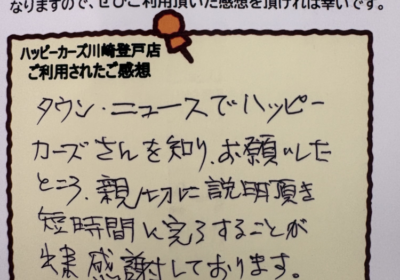 なりますので、ぜひご利用頂いた感想を頂ければ幸いです。
ハッピーカーズ川崎登戸店
ご利用されたご感想
タウン・ニュースでハッピー
カーズさんを知り、お願いした
ところ、親切に説明頂き
短時間に完了することが
出来 感謝しております。